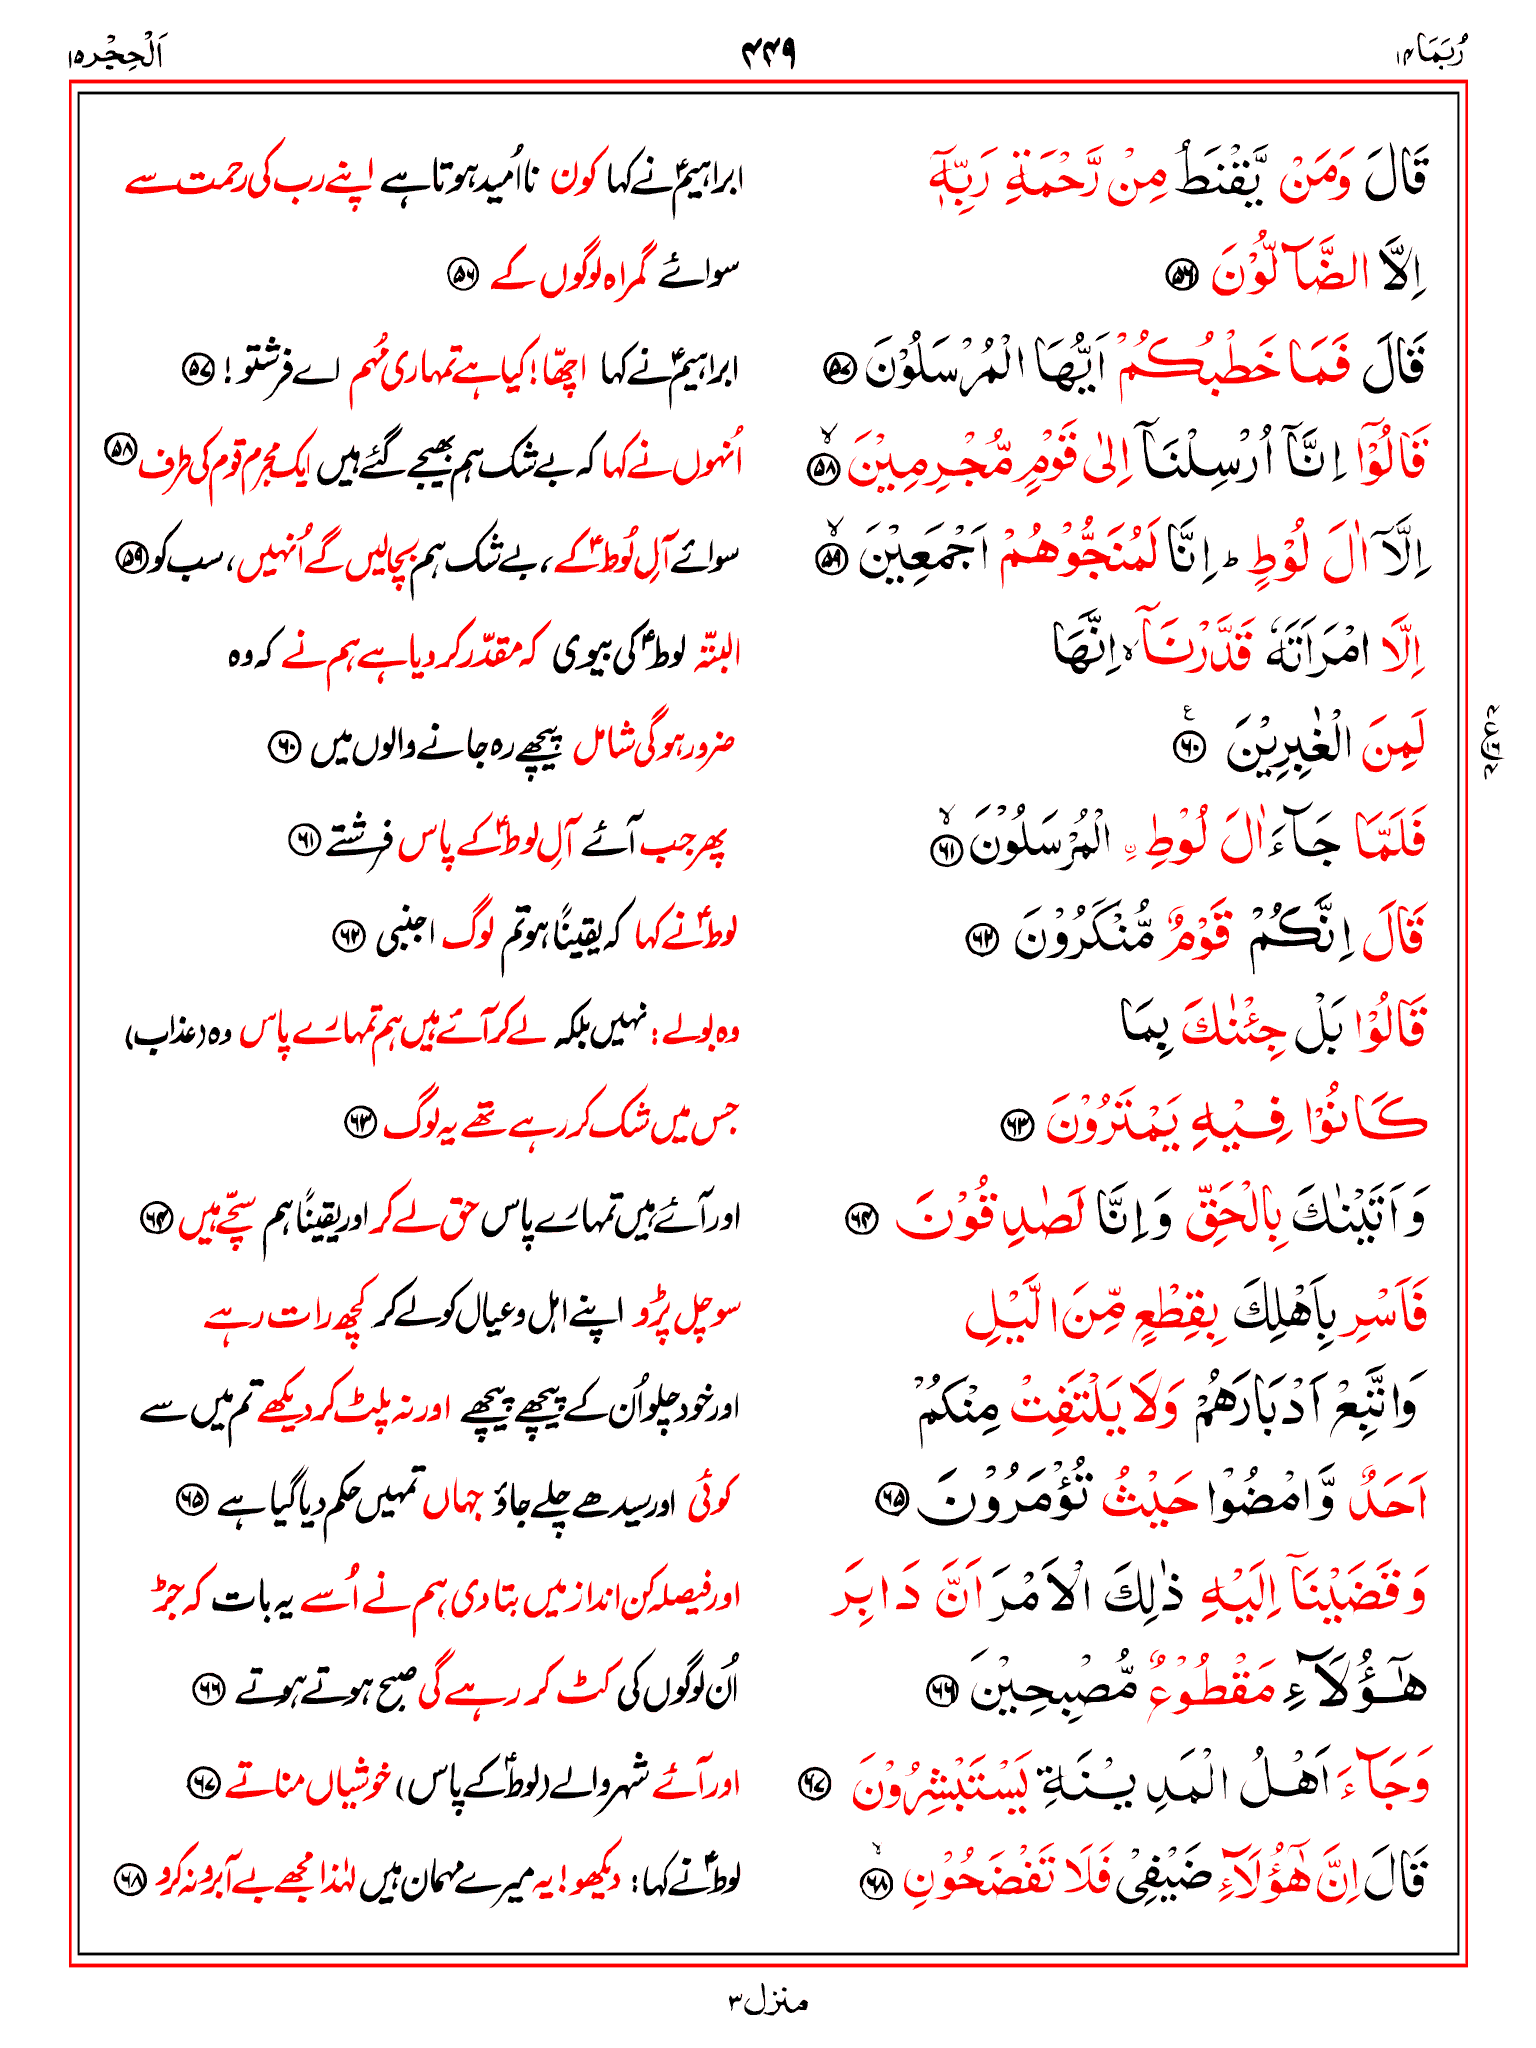 رُبَمَا ۱۴ ۴۴۹ اَلْحِجْر ۱۵
قَالَ وَمَنْ يَّقْنَطُ مِنْ رَّحْمَةِ رَبِّهٖٓ ابراہیمؑ نے کہا کون نا اُمید ہوتا ہے اپنے رب کی رحمت سے
اِلَّا الضَّآلُّوْنَ ۝۵۶ سوائے گمراہ لوگوں کے ۝۵۶
قَالَ فَمَا خَطْبُكُمْ اَيُّهَا الْمُرْسَلُوْنَ ۝۵۷ ابراہیمؑ نے کہا اچھّا! کیا ہے تمہاری مُہم اے فرشتو! ۝۵۷
قَالُوْٓا اِنَّآ اُرْسِلْنَآ اِلٰى قَوْمٍ مُّجْرِمِيْنَ ۝۵۸ۙ اُنہوں نے کہا کہ بے شک ہم بھیجے گئے ہیں ایک مجرم قوم کی طرف ۝۵۸
اِلَّآ اٰلَ لُوْطٍ ؕ اِنَّا لَمُنَجُّوْهُمْ اَجْمَعِيْنَ ۝۵۹ۙ سوائے آلِ لُوطؑ کے، بے شک ہم بچالیں گے اُنہیں، سب کو ۝۵۹
اِلَّا امْرَاَتَهٗ قَدَّرْنَآ ۙ اِنَّهَا البتّہ لوطؑ کی بیوی کہ مقدّر کردیا ہے ہم نے کہ وہ
لَمِنَ الْغٰبِرِيْنَ ۝۶۰ۧ ضرور ہوگی شامل پیچھے رہ جانے والوں میں ۝۶۰
فَلَمَّا جَآءَ اٰلَ لُوْطِ ۨ الْمُرْسَلُوْنَ ۝۶۱ۙ پھر جب آئے آلِ لوطؑ کے پاس فرشتے ۝۶۱
قَالَ اِنَّكُمْ قَوْمٌ مُّنْكَرُوْنَ ۝۶۲ لوطؑ نے کہا کہ یقیناً ہو تم لوگ اجنبی ۝۶۲
قَالُوْا بَلْ جِئْنٰكَ بِمَا وہ بولے: نہیں بلکہ لے کر آئے ہیں ہم تمہارے پاس وہ (عذاب)
كَانُوْا فِيْهِ يَمْتَرُوْنَ ۝۶۳ جس میں شک کررہے تھے یہ لوگ ۝۶۳
وَاَتَيْنٰكَ بِالْحَقِّ وَاِنَّا لَصٰدِقُوْنَ ۝۶۴ اور آئے ہیں تمہارے پاس حق لے کر اور یقیناً ہم سچّے ہیں ۝۶۴
فَاَسْرِ بِاَهْلِكَ بِقِطْعٍ مِّنَ الَّيْلِ سو چل پڑو اپنے اہل و عیال کو لے کر کچھ رات رہے
وَاتَّبِعْ اَدْبَارَهُمْ وَلَا يَلْتَفِتْ مِنْكُمْ اور خود چلو اُن کے پیچھے پیچھے اور نہ پلٹ کر دیکھے تم میں سے
اَحَدٌ وَّامْضُوْا حَيْثُ تُؤْمَرُوْنَ ۝۶۵ کوئی اور سیدھے چلے جاؤ جہاں تمہیں حکم دیا گیا ہے ۝۶۵
وَقَضَيْنَآ اِلَيْهِ ذٰلِكَ الْاَمْرَ اَنَّ دَابِرَ اور فیصلہ کن انداز میں بتادی ہم نے اُسے یہ بات کہ جڑ
هٰٓؤُلَآءِ مَقْطُوْعٌ مُّصْبِحِيْنَ ۝۶۶ اُن لوگوں کی کٹ کر رہے گی صبح ہوتے ہوتے ۝۶۶
وَجَآءَ اَهْلُ الْمَدِيْنَةِ يَسْتَبْشِرُوْنَ ۝۶۷ اور آئے شہر والے (لوطؑ کے پاس) خوشیاں مناتے ۝۶۷
قَالَ اِنَّ هٰٓؤُلَآءِ ضَيْفِيْ فَلَا تَفْضَحُوْنِ ۝۶۸ۙ لوطؑ نے کہا: دیکھو! یہ میرے مہمان ہیں لہٰذا مجھے بے آبرو نہ کرو ۝۶۸
منزل ۳